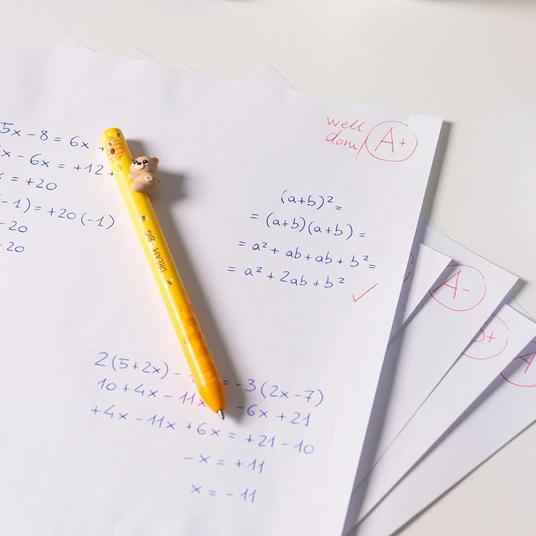 5x - 8 = 6x +
x - 6x = +12 +
= +20
-1) = +20 (-1)
-20
20
well done!
A+
(a+b)² =
= (a+b)(a+b) =
= a² + ab + ab + b² =
= a² + 2ab + b²
DREAM BIG
2(5+2x) - = -3(2x-7)
10 + 4x - 11x -6x + 21
+4x - 11x + 6x = +21 - 10
-x = +11
x = -11
A-
A